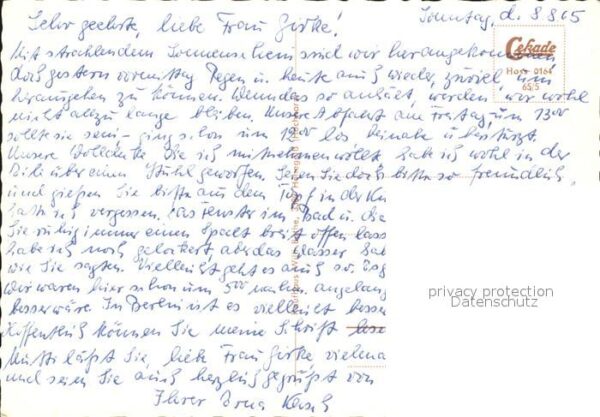 Sonntag, d. 8.8.65
Sehr geehrte, liebe Frau Girke!
Mit strahlendem Sonnenschein sind wir hier angekommen
doch gestern vormittag Regen u. heute auch wieder, zuviel, um
herausgehen zu können. Wenn das so anhält, werden wir wohl
nicht allzu lange bleiben. Unsere Abfahrt am Freitag, um 13⁰⁰
sollte sie sein - ging schon um 12⁰⁰ los, beinahe überstürzt.
Unsere Wolldecke, die ich mitnehmen wollte, hab ich wohl in der
Eile über einen Stuhl geworfen. Seien Sie doch bitte so freundlich,
und gießen Sie bitte aus dem Topf in der Kü
hatte ich vergessen. Das Fenster im Bad u. die
Sie ruhig immer einen Spalt breit offen lass
habe ich noch gelockert, aber das Wasser
wie Sie sagten. Vielleicht geht es auch so.
Wir waren hier schon um 5⁰⁰ nachm. angelang
besser wäre. In Berlin ist es vielleicht besser
Hoffentlich können Sie meine Schrift lese
Mutti läßt Sie, liebe Frau Girke, vielma
und seien Sie auch herzlich gegrüßt von
Ihrer
Cekade
Han 0164
65/5
privacy protection
Datenschutz